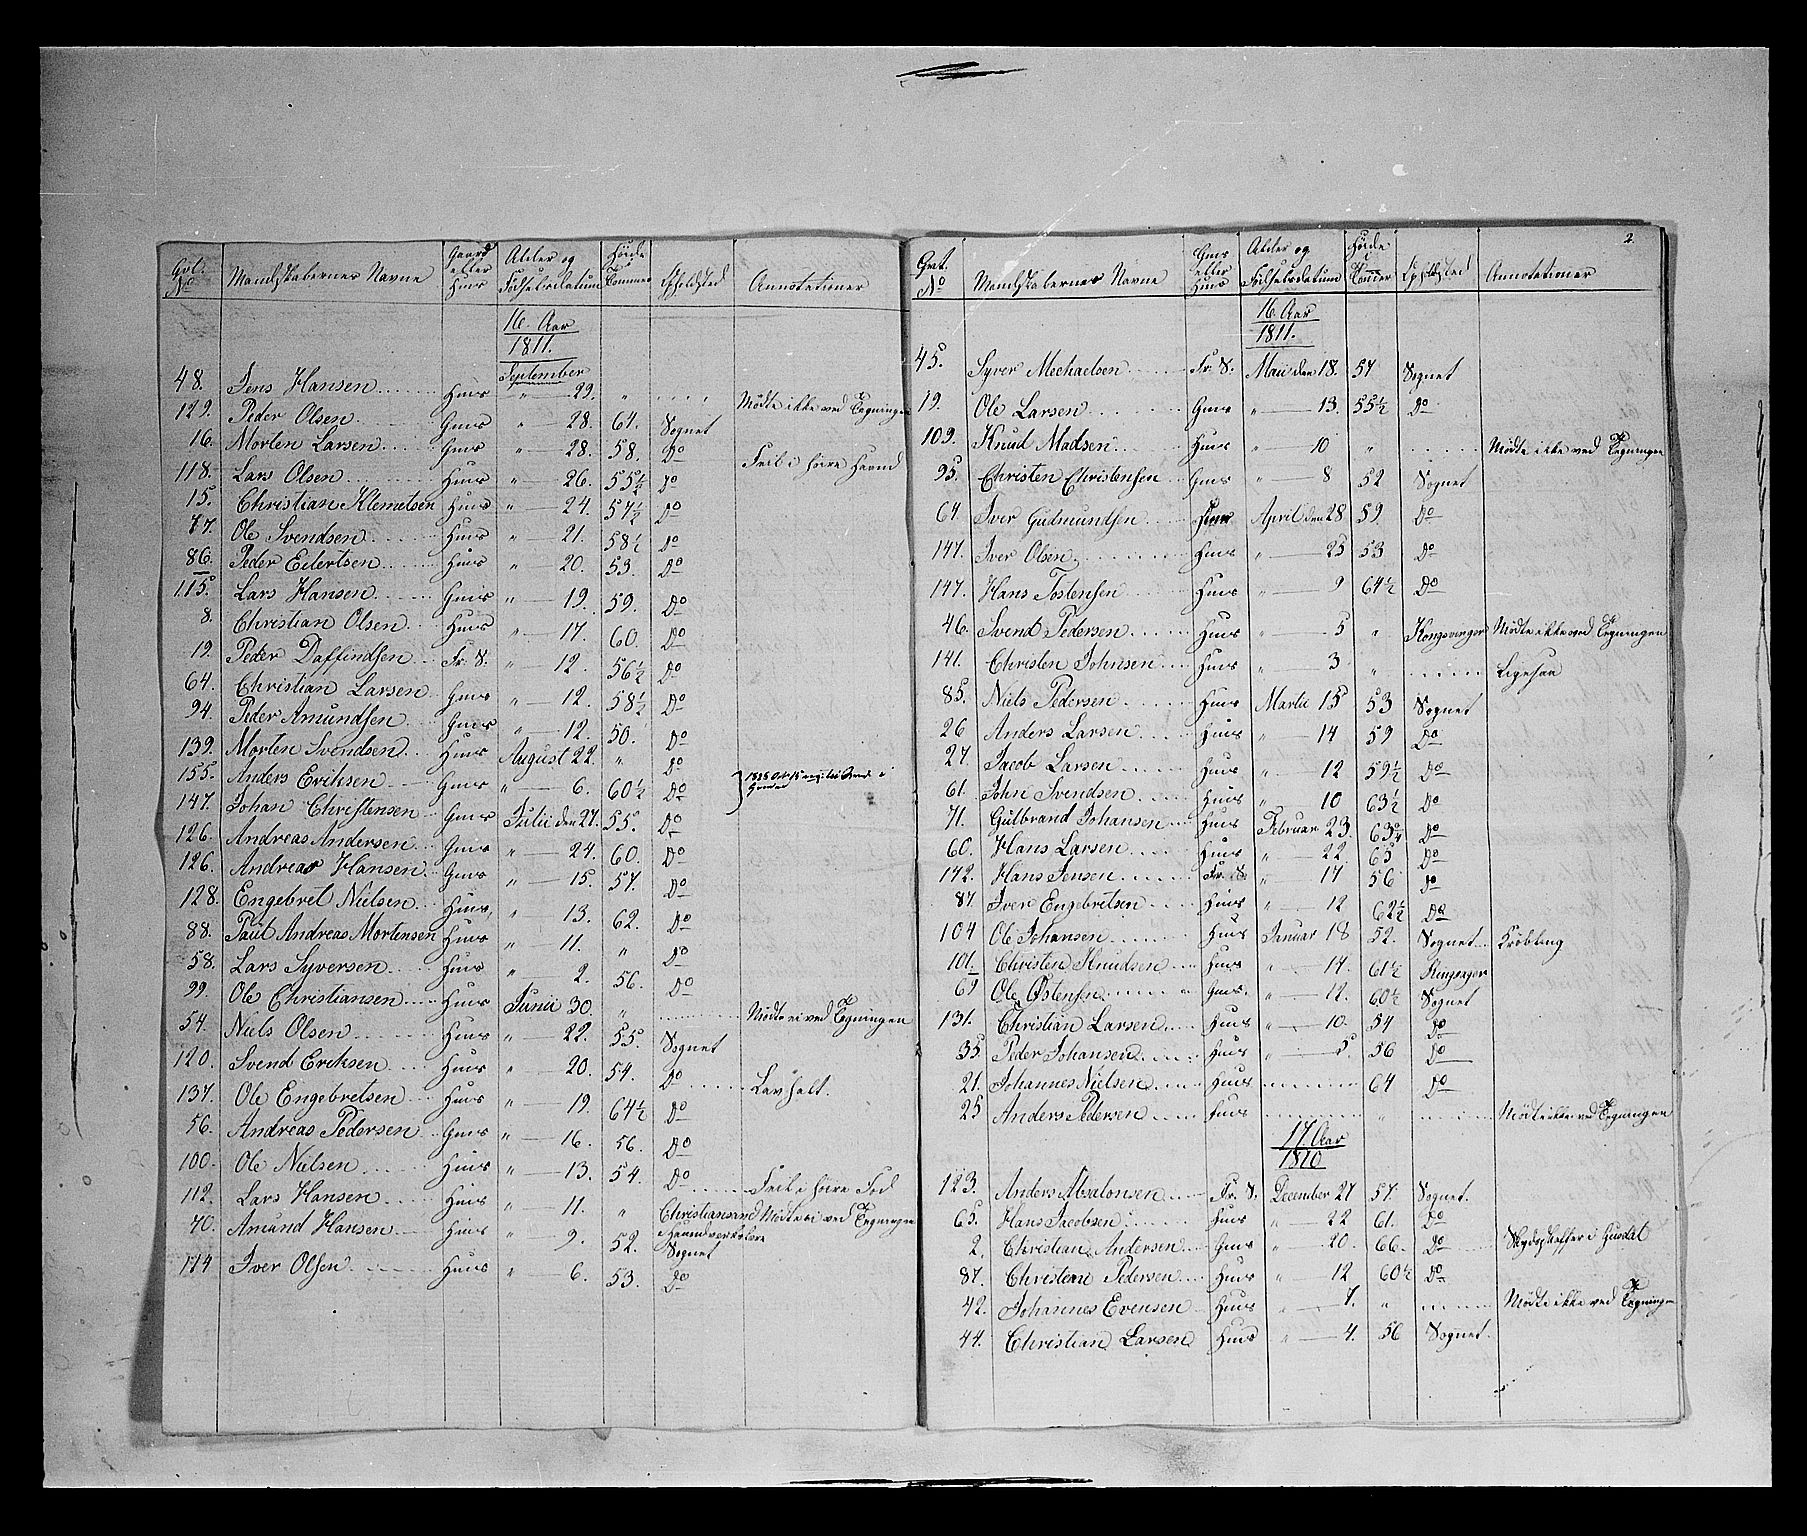 Mandskabernes Navne
Gaard eller Huus
Alder og Fødselsdatum
Høide Tommer
Opholdsted
Annotationer
16. Aar
1811.
September
48. Jens Hansen Huus " 29. "
Mødte ikke ved Tegningen
129. Peder Olsen 28. 64. Sognet
16. Morten Larsen 28. 58. Do
118. Lars Olsen Huus " 26. 55½ Do
15. Christian Klemetsen Huus " 24. 57½ Do
77. Ole Svendsen Huus " 21. 58½ Do
86. Peder Eilertsen Huus " 20. 53. Do
115. Lars Hansen " 19. 59. Do
8. Christian Olsen Huus " 17. 60. Do
19. Peder Daffindsen Fr. S. " 12. 56½ Do
64. Christian Larsen " 12. 58½ Do
94. Peder Amundsen " 12. 50. Do
139. Morten Svendsen Huus August 22. " Do
155. Anders Eriksen " 6. 60½ Do
147. Johan Christensen Julii den 27. 55. Do
126. Andreas Andersen " 24. 60. Do
126. Andreas Hansen " 15. 57. Do
128. Engebret Nielsen Huus " 13. 62. Do
88. Paul Andreas Mortensen Huus " 11. " Do
58. Lars Syversen Huus " 2. 56. Do
99. Ole Christiansen Huus Junii 30. " Mødte ei ved Tegningen
54. Niels Olsen Huus " 22. 55. Sognet
120. Svend Eriksen Huus " 20. 54. Do Lavhalt.
137. Ole Engebretsen Huus " 19. 64½ Do
56. Andreas Pedersen " 16. 56. Do
100. Ole Nielsen Huus " 13. 54. Do Feil i høire Fod
112. Lars Hansen Huus " 11. " Christiansand Mødte ei ved Tegningen
70. Amund Hansen Huus " 9. 52. Sognet
174 Iver Olsen Huus " 6. 53. Do
2.
No
Mandskabernes Navne
Alder og Fødselsdatum
Høide Tommer
Opholdsted
Annotationer
16. Aar
1811.
45. Syver Mechaelsen Fr. S. Maii den 18. 57 Sognet
19. Ole Larsen " 13. 55½ Do
109. Knud Madsen Huus " 10 " Mødte ikke ved Tegningen
95. Christen Christensen " 8 52 Sognet
64. Iver Gudmundsen Huus April den 28 59. Do
147. Iver Olsen Huus " 25 53 Do
147. Hans Tostensen Huus " 9 64½ Do
46. Svend Pedersen Huus " 5 " Kongsvinger Mødte ikke ved Tegningen
141. Christen Johnsen Huus " 3 " Ligesaa
85. Niels Pedersen Huus Martii 15 53 Sognet
26 Anders Larsen Huus " 14 59 Do
27. Jacob Larsen Huus " 12 59½ Do
61. John Svendsen Huus " 10 63½ Do
71. Gulbrand Johansen Huus Februar 23. Do
60. Hans Larsen Huus " 22. 65 Do
172. Hans Jensen Fr. S. " 17 56 Do
87 Iver Engebretsen Huus " 12 62½ Do
104 Ole Johansen Huus Januar 18 52. Sognet Krøbling
101. Christen Knudsen Huus " 14. 61½ Ringsager
69 Ole Østensen " 12. 60½ Sognet
131. Christian Larsen Huus " 10. 54 Do
35. Peder Johansen Huus " 5. 56 Do
21. Johannes Nielsen Huus 64 Do
25 Anders Pedersen Huus " Mødte ikke ved Tegningen
17. Aar
1810
123. Anders Absalonsen Fr. S. December 27 57. Sognet.
65. Hans Jacobsen Huus " 22 61. Do
2. Christian Andersen " 20. 66. Do Skydsskaffer i
87. Christian Pedersen Huus " 12 60½ Do
42. Johannes Evensen Huus " 7. " Mødte ikke ved Tegningen
44. Christian Larsen Huus " 4. 56 Sognet.